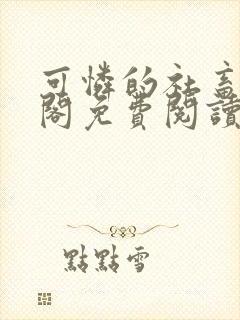 可憐的社畜
閣免費閱讀
點點雪